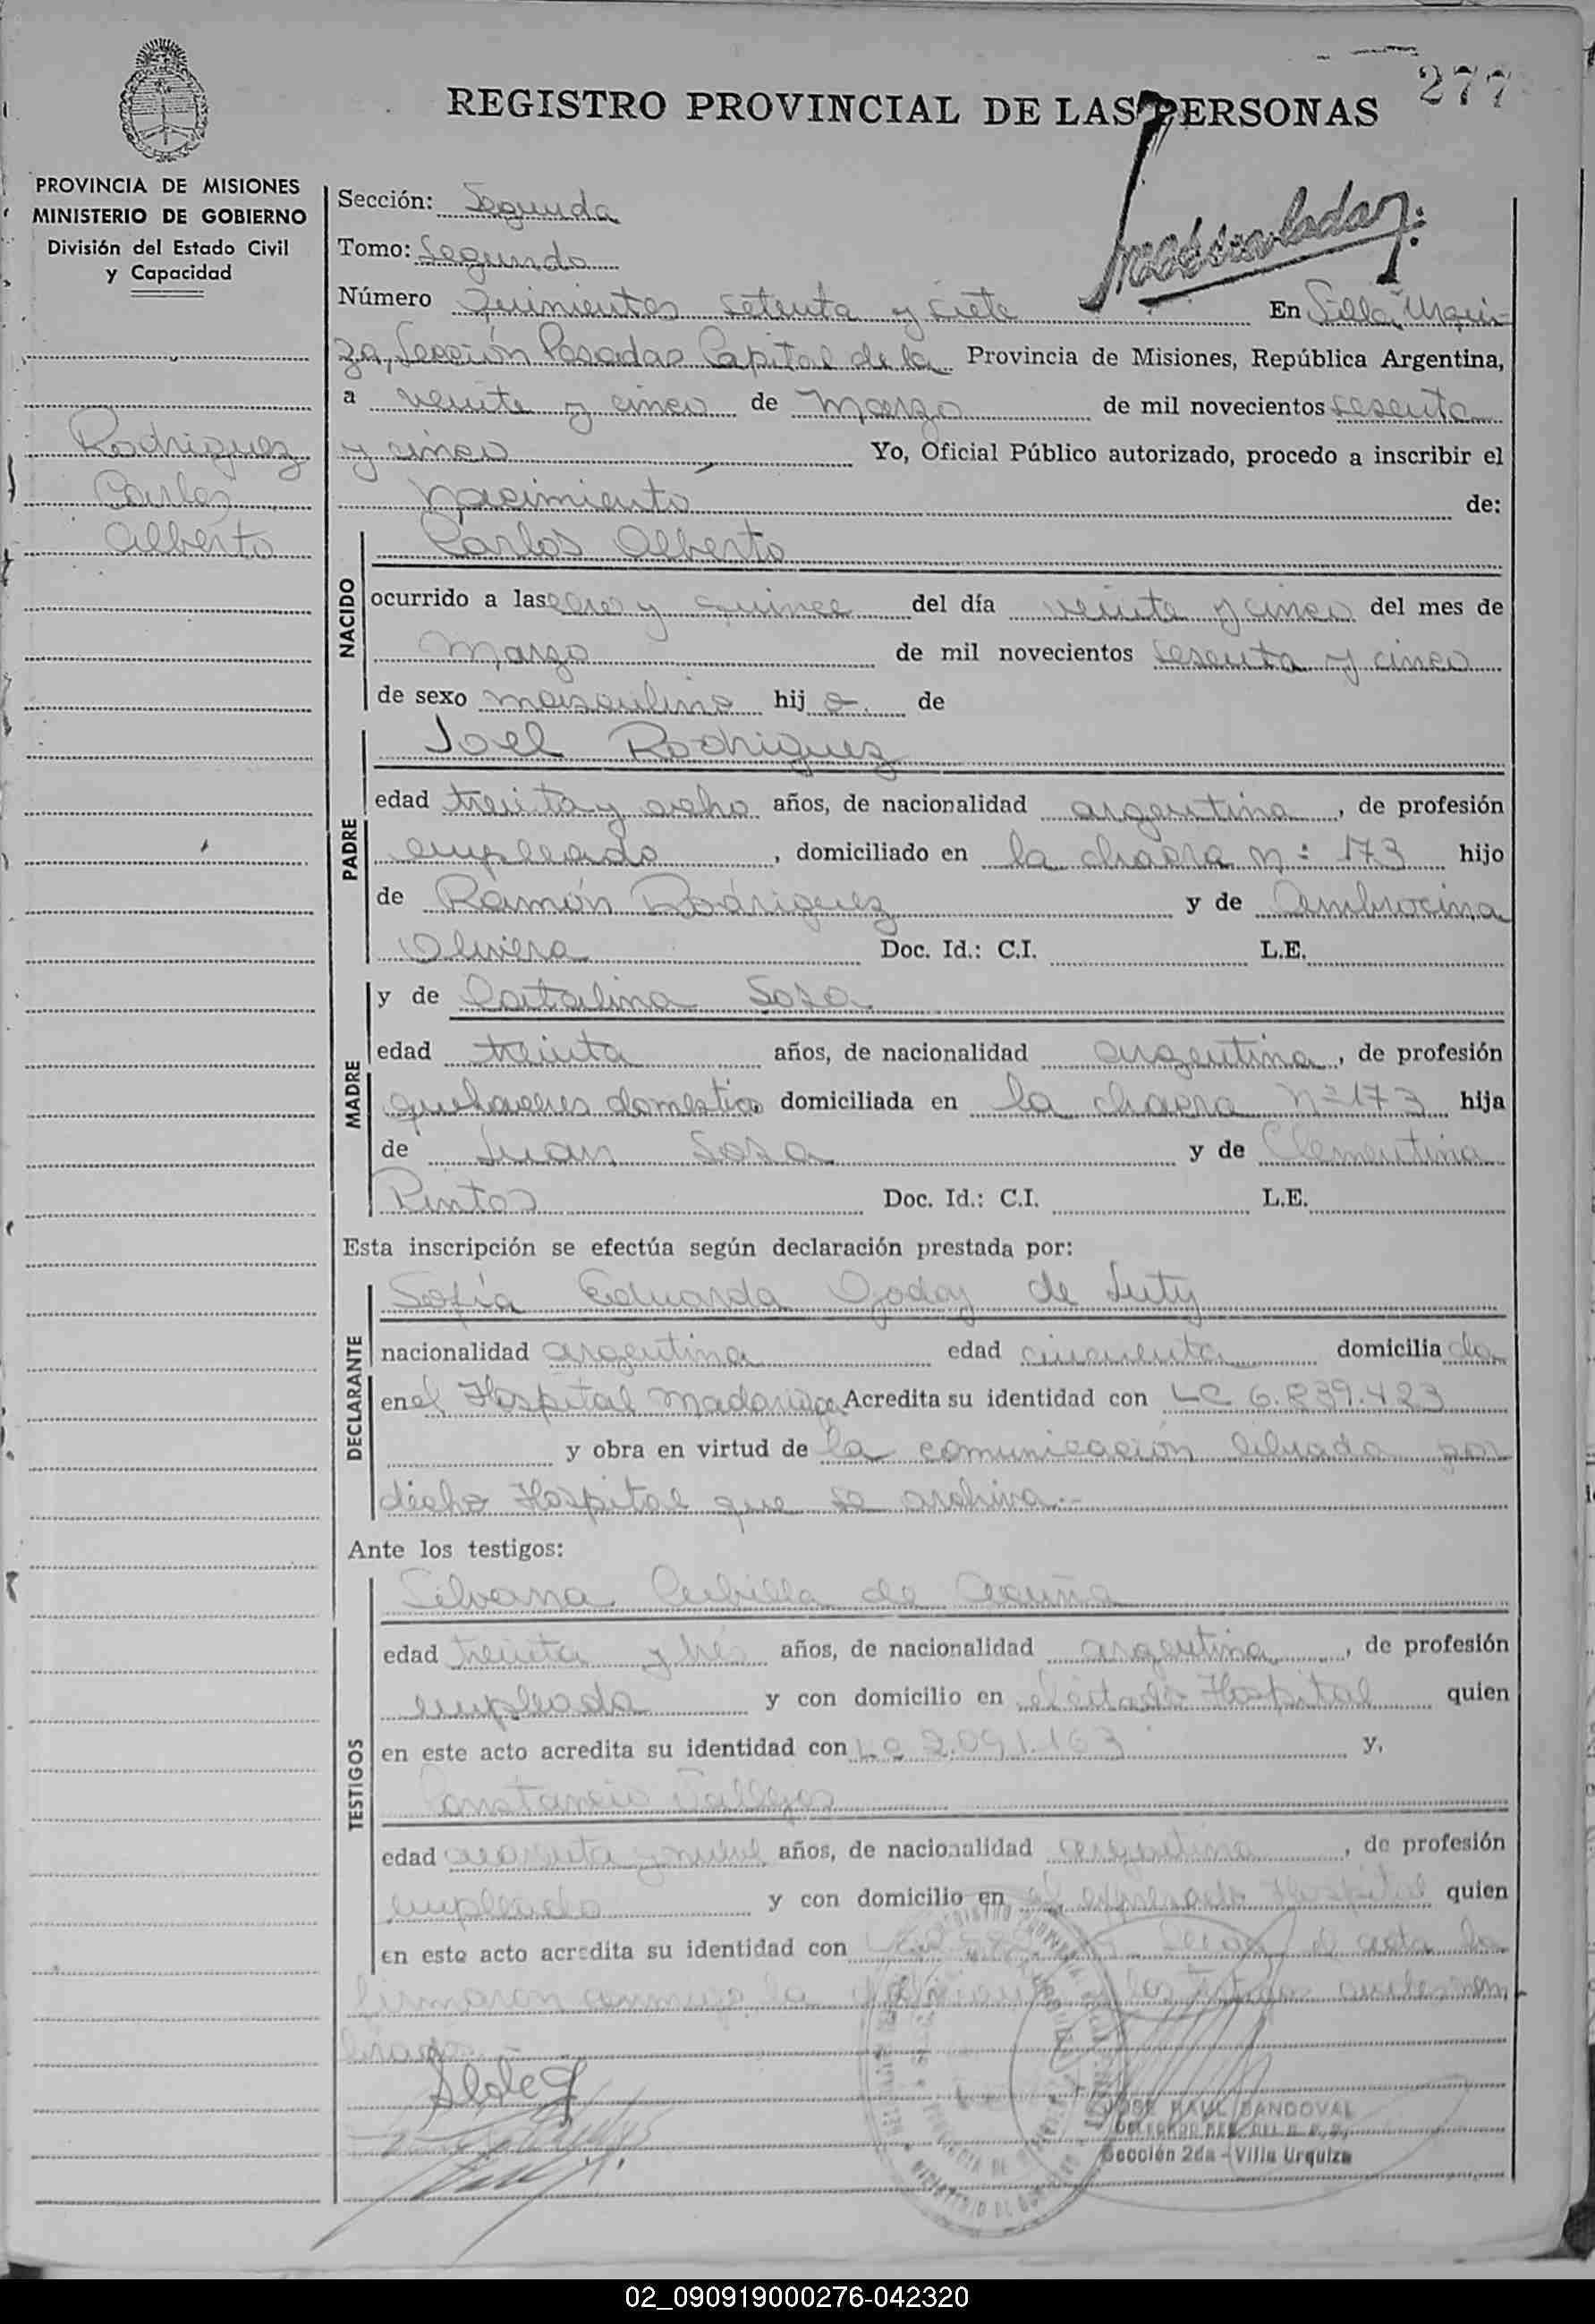 277
REGISTRO PROVINCIAL DE LAS PERSONAS
PROVINCIA DE MISIONES
MINISTERIO DE GOBIERNO
División del Estado Civil
y Capacidad
Rodriguez
Carlos
Alberto
Sección: Segunda
Tomo: Segundo
Número Quinientos setenta y siete En Villa Urqui-
za, Sección Posadas Capital de la Provincia de Misiones, República Argentina,
a veinte y cinco de Marzo de mil novecientos sesenta
y cinco Yo, Oficial Público autorizado, procedo a inscribir el
nacimiento de:
NACIDO
Carlos Alberto
ocurrido a las cero y quince del día veinte y cinco del mes de
Marzo de mil novecientos sesenta y cinco
de sexo masculino hijo de
PADRE
Joel Rodriguez
edad treinta y ocho años, de nacionalidad argentina, de profesión
empleado, domiciliado en la chacra n: 173 hijo
de Ramón Rodriguez y de Ambrocina
Olivera Doc. Id.: C.I. L.E.
MADRE
y de Catalina Sosa
edad treinta años, de nacionalidad argentina, de profesión
quehaceres domestico domiciliada en la chacra nº 173 hija
de Juan Sosa y de Clementina
Pintos Doc. Id.: C.I. L.E.
Esta inscripción se efectúa según declaración prestada por:
DECLARANTE
Sofía Eduarda Godoy de
nacionalidad argentina edad cincuenta domiciliada
en el Hospital Madariaga Acredita su identidad con LC 6.839.423
y obra en virtud de la comunicación elevada por
dicho Hospital que se archiva.-
Ante los testigos:
TESTIGOS
Silvana Cubilla de Acuña
edad treinta y tres años, de nacionalidad argentina, de profesión
empleada y con domicilio en el citado Hospital quien
en este acto acredita su identidad con LC 2.091.163 y,
Constancio Vallejos
edad cuarenta y nueve años, de nacionalidad argentina, de profesión
empleado y con domicilio en el expresado Hospital quien
en este acto acredita su identidad con acta la
firmaron conmigo la y los testigos antes nom
brados
JOSE RAUL SANDOVAL
Sección 2da - Villa Urquiza
02_090919000276-042320